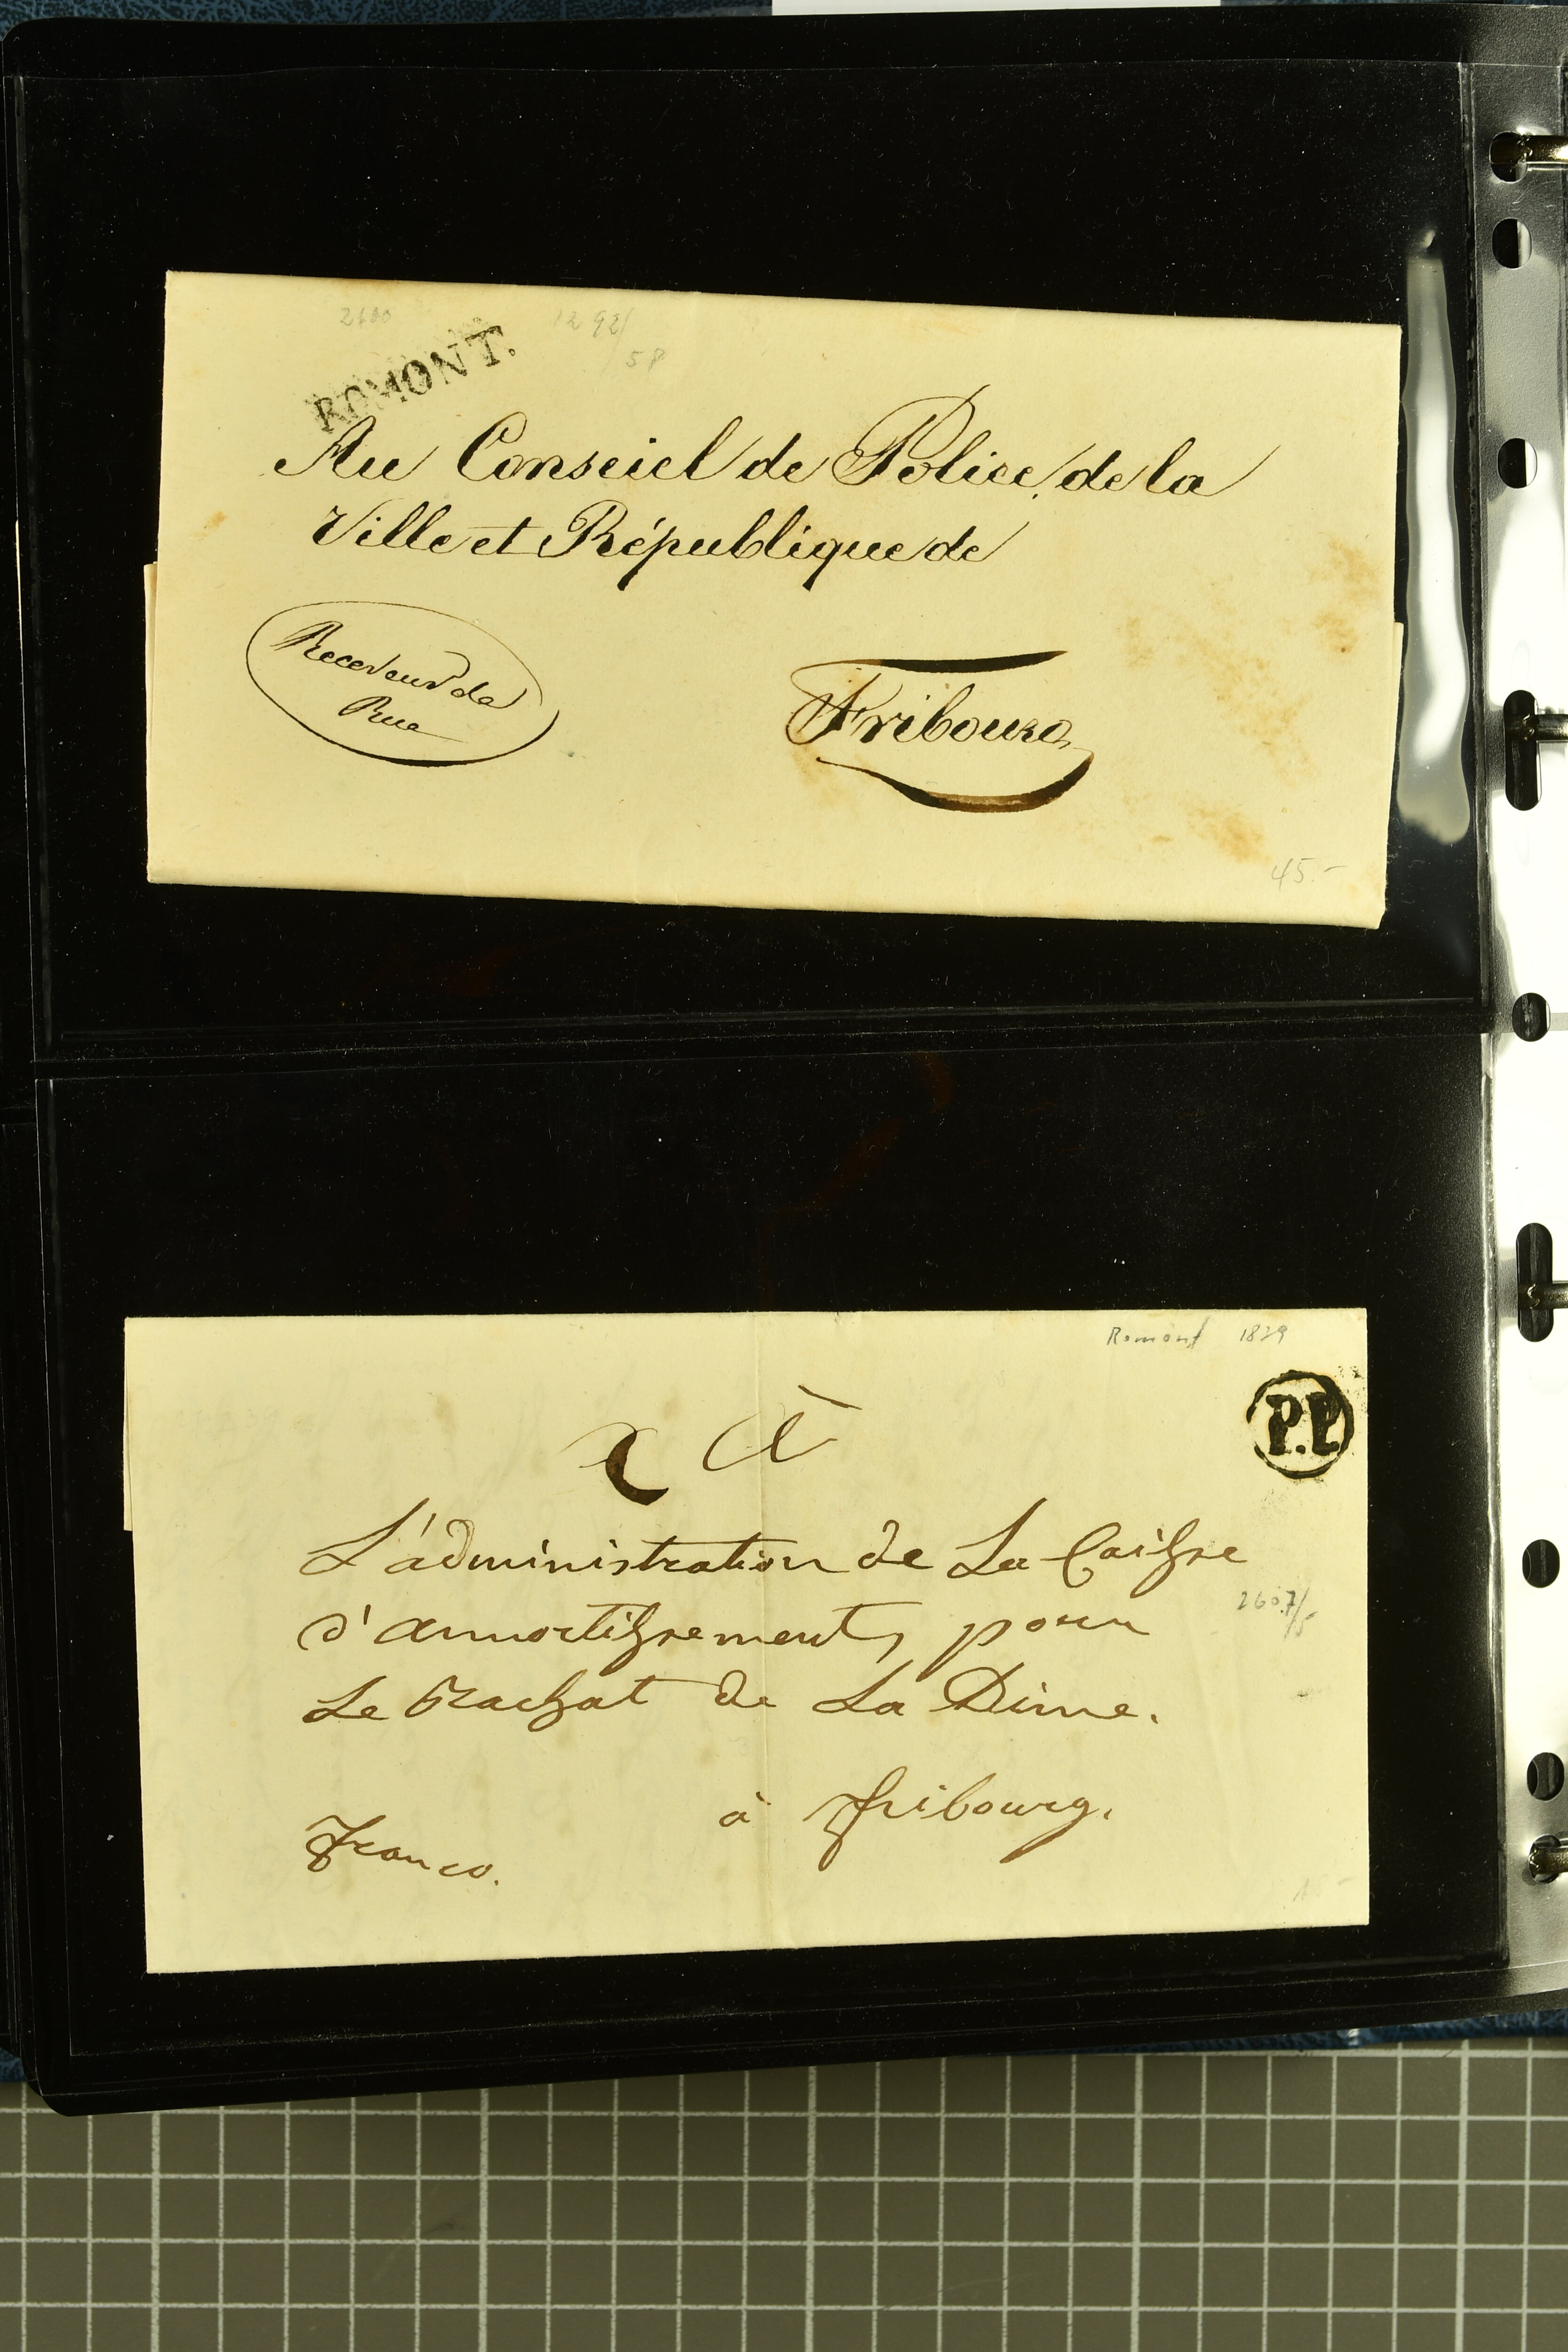 2600 1292/
58
ROMONT.
Au Conseiel de Police, de la
Ville et République de
Receveur de
Rue
Fribourg
45.-
Romont 1829
P.P.
À
L'administration de La Caisse
d'amortissement, pour
Le Rachat de La Dime.
à fribourg.
franco.
2607/